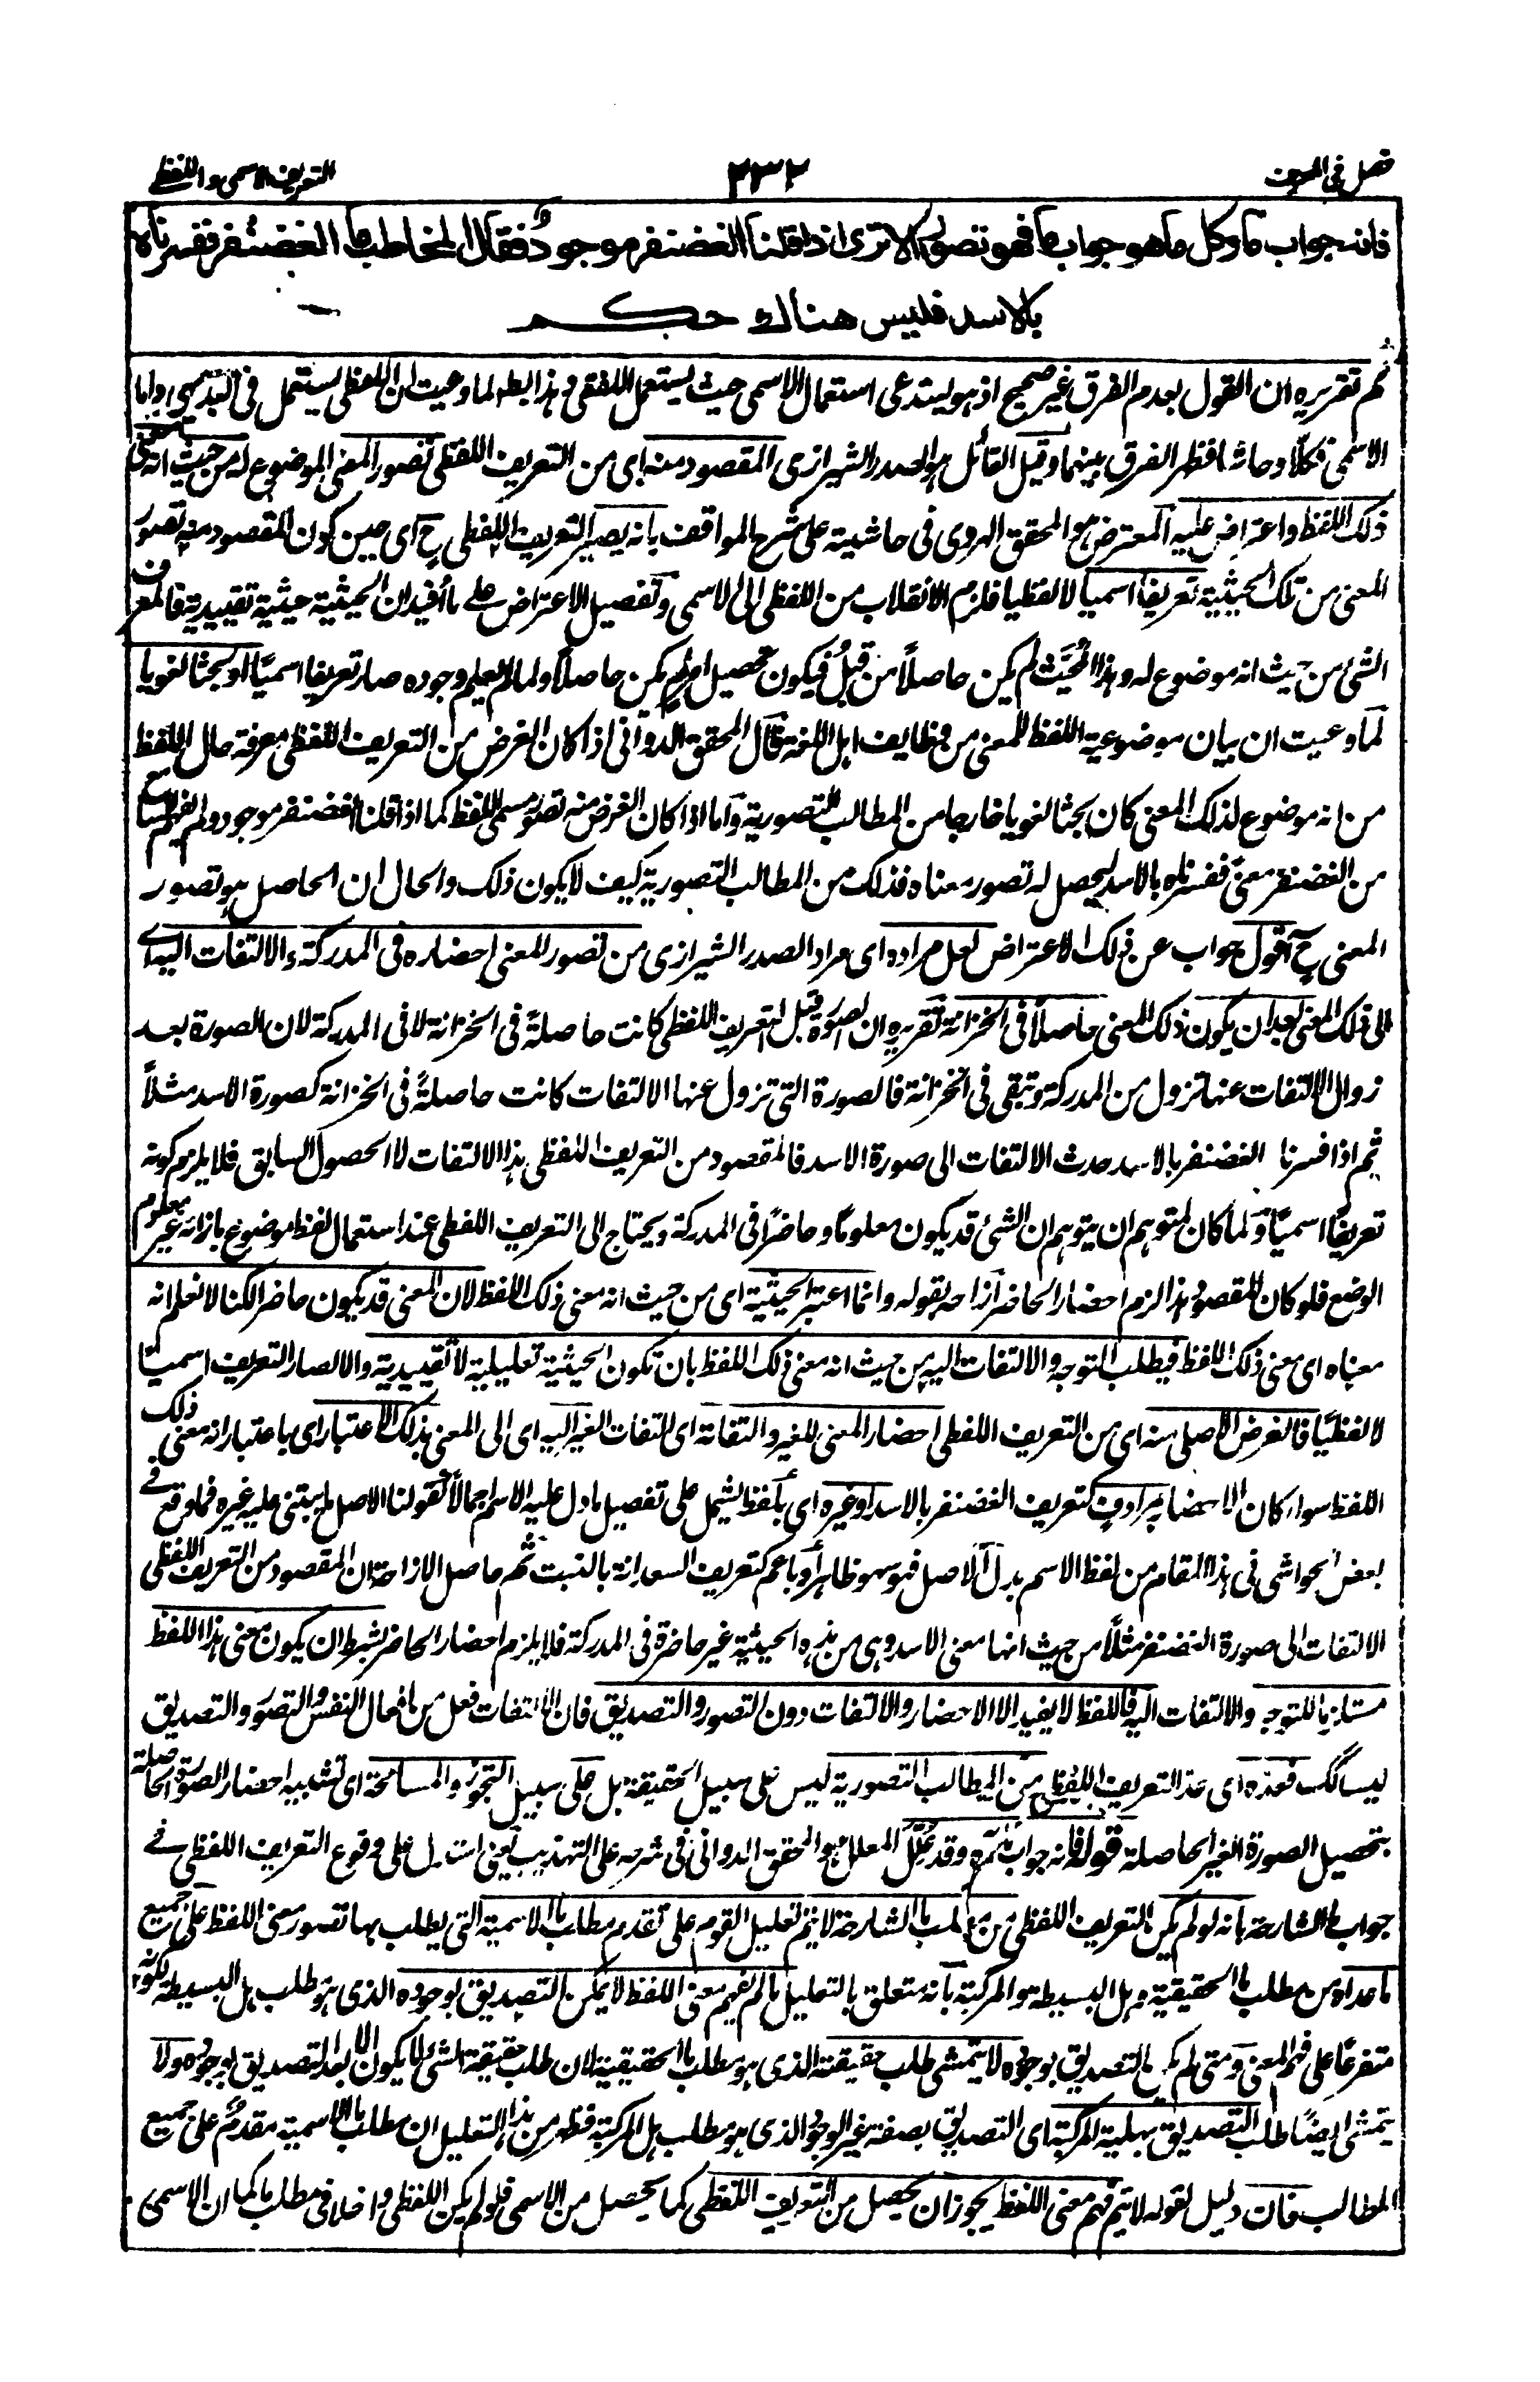 فصل في المعرف
٢٣٢
التعريف الاسمي واللفظي
فانه جواب ما وكل ما هو جواب ما فهو تصور الا ترى اذا قلنا الغضنفر موجود فقال المخاطب ما الغضنفر ففسرناه
بالاسد فليس هناك حكم
ثم تقريره ان القول بعدم الفرق غير صحيح اذ هو يستدعي استعمال الاسمي حيث يستعمل اللفظي وهذا بط لما وعيت ان اللفظي يستعمل في البديهي واما
الاسمي فكلا وحاشا فظهر الفرق بينهما وقيل القائل هو الصدر الشيرازي المقصود منه اي من التعريف اللفظي تصور المعنى الموضوع له من حيث انه معنى
ذلك اللفظ واعترض عليه المعترض هو المحقق الهروي في حاشيته على شرح المواقف بانه يصير التعريف اللفظي ح اي حين كون المقصود منه تصور
المعنى من تلك الحيثية تعريفا اسميا لا لفظيا فلزم الانقلاب من اللفظي الى الاسمي وتفصيل الاعتراض على ما أفيد ان الحيثية حيثية تقييدية فالمعرف
الشئ من حيث انه موضوع له وهذا المحيَّث لم يكن حاصلاً من قبلُ فيكون تحصيل امر لم يكن حاصلا ولما لم يعلم وجوده صار تعريفا اسميًا او بحثا لغويا
لما وعيت ان بيان موضوعية اللفظ للمعنى من وظايف اهل اللغة قال المحقق الدواني اذا كان الغرض من التعريف اللفظي معرفة حال اللفظ
من انه موضوع لذلك المعنى كان بحثا لغويا خارجا من المطالب التصورية واما اذا كان الغرض منه تصور مسمى اللفظ كما اذا قلنا الغضنفر موجود ولم يفهم السامع
من الغضنفر معنىً ففسرناه بالاسد ليحصل له تصور معناه فذلك من المطالب التصورية كيف لا يكون ذلك والحال ان الحاصل هو تصور
المعنى ح اقول جواب عن ذلك الاعتراض لعل مراده اي مراد الصدر الشيرازي من تصور المعنى احضاره في المدركة والالتفات اليه اي
الى ذلك المعنى بعد ان يكون ذلك المعنى حاصلا في الخزانة تقريره ان الصورة قبل التعريف اللفظي كانت حاصلةً في الخزانة لا في المدركة لان الصورة بعد
زوال الالتفات عنها تزول من المدركة وتبقى في الخزانة فالصورة التي تزول عنها الالتفات كانت حاصلةً في الخزانة كصورة الاسد مثلاً
ثم اذا فسرنا الغضنفر بالاسد حدث الالتفات الى صورة الاسد فالمقصود من التعريف اللفظي هذا الالتفات لا الحصول السابق فلا يلزم كونه
تعريفًا اسميًا ولما كان لمتوهم ان يتوهم ان الشئ قد يكون معلوما وحاضرًا في المدركة ويحتاج الى التعريف اللفظي عند استعمال لفظ موضوع بازائه غير معلوم
الوضع فلو كان المقصود هذا لزم احضار الحاضر ازاحه بقوله وانما اعتبر الحيثية اي من حيث انه معنى ذلك اللفظ لان المعنى قد يكون حاضرا لكنا لا نعلم انه
معناه اي معنى ذلك اللفظ فيطلب التوجه والالتفات اليه من حيث انه معنى ذلك اللفظ بان تكون الحيثية تعليلية لا تقييدية والا لصار التعريف اسميًا
لا لفظيًا فالغرض الاصلي منه اي من التعريف اللفظي احضار المعنى للغير والتفاته اي التفات الغير اليه اي الى المعنى بذلك الاعتبار اي باعتبار انه معنى ذلك
اللفظ سواء كان الاحضار بمرادف كتعريف الغضنفر بالاسد او غيره اي بلفظ يشمل على تفصيل ما دل عليه الاسم اجمالا كقولنا الاصل ما يبتنى عليه غيره فما وقع في
بعض الحواشي في هذا المقام من لفظ الاسم بدل الاصل فهو سهو ظاهر او باعم كتعريف السعدانة بالنبت ثم حاصل الازاحة ان المقصود من التعريف اللفظي
الالتفات الى صورة الغضنفر مثلاً من حيث انها معنى الاسد وهي من هذه الحيثية غير حاضرة في المدركة فلا يلزم احضار الحاضر بشرط ان يكون معنى هذا اللفظ
مستلزما للتوجه والالتفات اليه فاللفظ لا يفيد الا الاحضار والالتفات دون التصور والتصديق فان الالتفات فعل من افعال النفس والتصور والتصديق
ليسا كك فعدّه اي عد التعريف اللفظي من المطالب التصورية ليس على سبيل الحقيقة بل على سبيل التجوز والمسامحة اي تشبيه احضار الصورة الحاصلة
بتحصيل الصورة الغير الحاصلة قوله فانه جواب ما وقد علل المعلل هو المحقق الدواني في شرحه على التهذيب يعني استدل على وقوع التعريف اللفظي في
جواب ما الشارحة بانه لو لم يكن التعريف اللفظي من مطلب ما الشارحة لا يتم تعليل القوم على تقدم مطلب ما الاسمية التي يطلب بها تصور معنى اللفظ على جميع
ما عداه من مطلب ما الحقيقية وهل البسيطة والمركبة بانه متعلق بالتعليل ما لم يفهم معنى اللفظ لا يمكن التصديق بوجوده الذي هو طلب هل البسيطة لكونه
متفرعًا على فهم المعنى ومتى لم يكن التصديق بوجوده لا يتمشى طلب حقيقته الذي هو مطلب ما الحقيقية لان طلب حقيقة الشئ لا يكون الا بعد التصديق بوجوده ولا
يتمشى ايضًا طلب التصديق بهلية المركبة اي التصديق بصفة غير الوجود الذي هو مطلب هل المركبة فظهر من هذا التعليل ان مطلب ما الاسمية مقدمٌ على جميع
المطالب فان دليل لقوله لا يتم فهم معنى اللفظ يجوز ان يحصل من التعريف اللفظي كما يحصل من الاسمي فلو لم يكن اللفظي داخلا في مطلب ما كما ان الاسمي